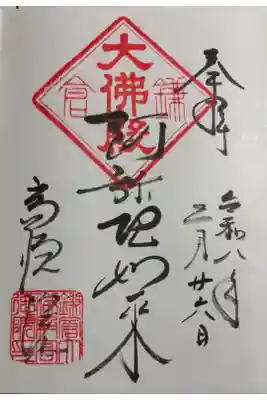 奉拝
令和八年
三月廿六日
大佛殿
鎌倉
阿弥陀如来
高徳院